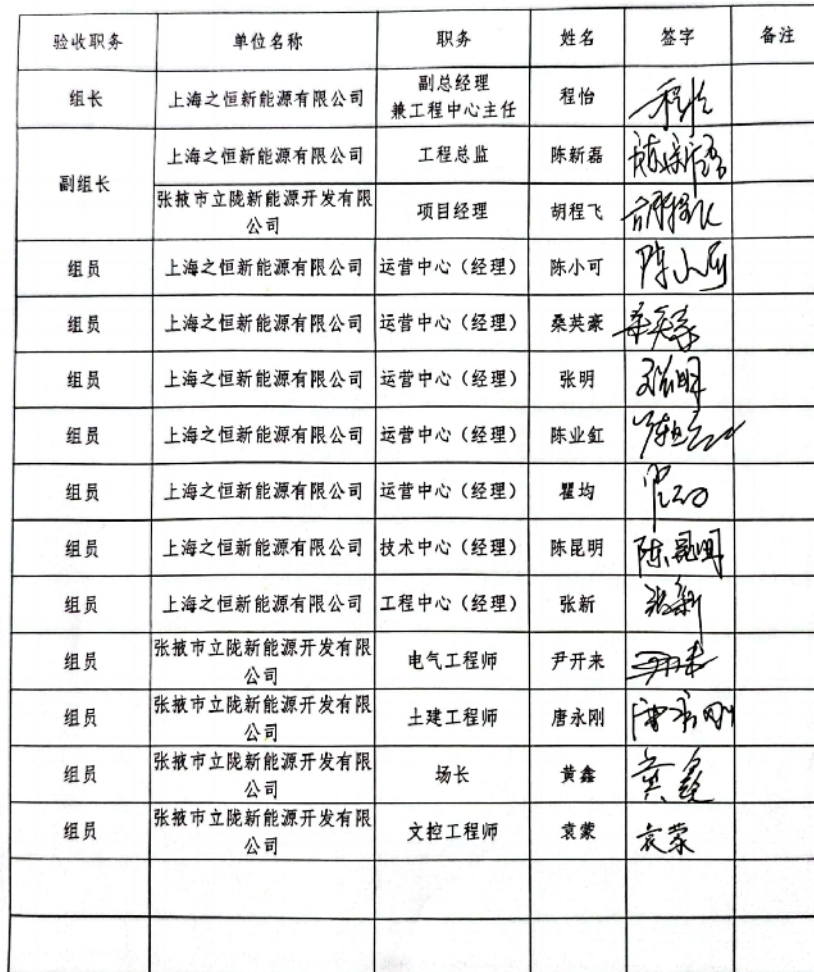 验收职务 单位名称 职务 姓名 签字 备注
组长 上海之恒新能源有限公司 副总经理 兼工程中心主任 程怡 程怡
副组长 上海之恒新能源有限公司 工程总监 陈新磊 陈新磊
张掖市立陇新能源开发有限公司 项目经理 胡程飞 胡程飞
组员 上海之恒新能源有限公司 运营中心（经理） 陈小可 陈小可
组员 上海之恒新能源有限公司 运营中心（经理） 桑英豪 桑英豪
组员 上海之恒新能源有限公司 运营中心（经理） 张明 张明
组员 上海之恒新能源有限公司 运营中心（经理） 陈业釭
组员 上海之恒新能源有限公司 运营中心（经理） 瞿均
组员 上海之恒新能源有限公司 技术中心（经理） 陈昆明 陈昆明
组员 上海之恒新能源有限公司 工程中心（经理） 张新 张新
组员 张掖市立陇新能源开发有限公司 电气工程师 尹开来 尹开来
组员 张掖市立陇新能源开发有限公司 土建工程师 唐永刚 唐永刚
组员 张掖市立陇新能源开发有限公司 场长 黄鑫 黄鑫
组员 张掖市立陇新能源开发有限公司 文控工程师 袁蒙 袁蒙